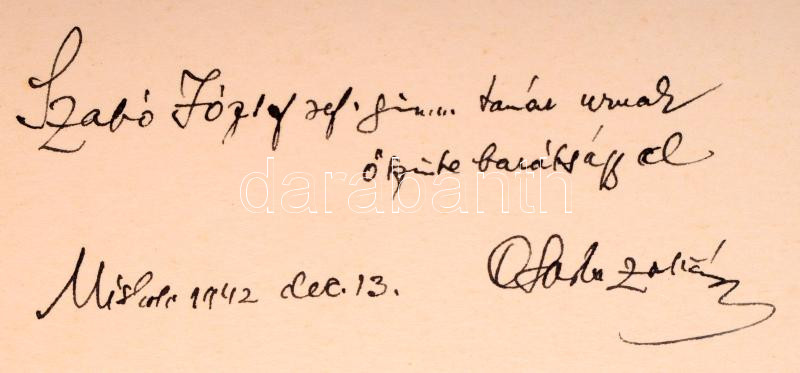 Szabó József ref. gimn. tanár urnak
őszinte barátsággal
darabanth
Miskolc 1942 dec. 13. Csorba Zoltán